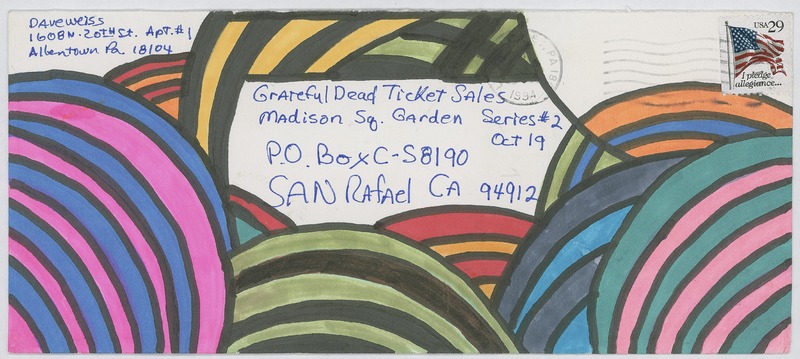 Dave Weiss
1608 N. 20TH St. Apt. #1
Allentown Pa. 18104
USA 29
I pledge
allegiance...
PA 18
1994
Grateful Dead Ticket Sales
Madison Sq. Garden Series #2
Oct 19
P.O. Box C-S8190
SAN Rafael CA 94912